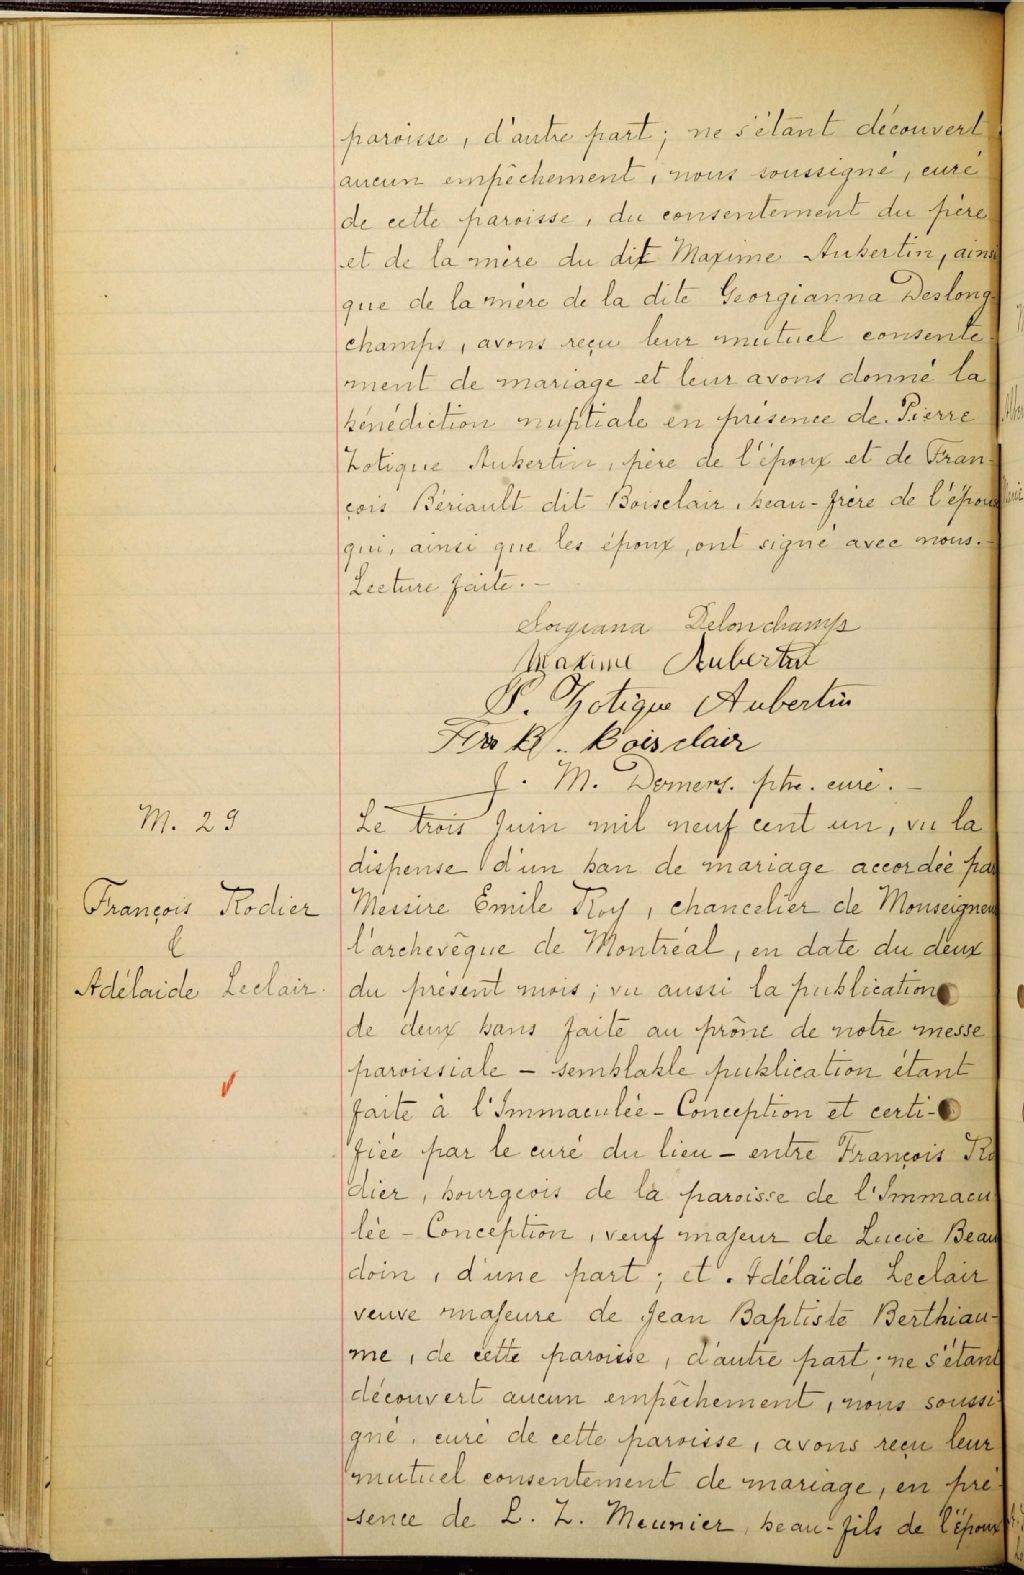 paroisse, d'autre part; ne s'étant découvert
aucun empêchement, nous soussigné, curé
de cette paroisse, du consentement du père
et de la mère du dit Maxime Aubertin, ainsi
que de la mère de la dite Georgianna Deslong-
champs, avons reçu leur mutuel consente-
ment de mariage et leur avons donné la
bénédiction nuptiale en présence de Pierre
Zotique Aubertin, père de l'époux et de Fran-
çois Bériault dit Boisclair, beau-frère de l'épouse
qui, ainsi que les époux, ont signé avec nous.-
Lecture faite.-
Gorgiana Delonchamps
Maxime Aubertin
P. Zotique Aubertin
Frs B. Boisclair
J. M. Demers. ptre. curé.-
M. 29
François Rodier
&
Adélaide Leclair.
Le trois Juin mil neuf cent un, vu la
dispense d'un ban de mariage accordée par
Messire Emile Roy, chancelier de Monseigneur
l'archevêque de Montréal, en date du deux
du présent mois; vu aussi la publication
de deux bans faite au prône de notre messe
paroissiale - semblable publication étant
faite à l'Immaculée-Conception et certi-
fiée par le curé du lieu - entre François Ro
dier, bourgeois de la paroisse de l'Immacu
lée-Conception, veuf majeur de Lucie Beau
doin, d'une part; et Adélaïde Leclair
veuve majeure de Jean Baptiste Berthiau-
me, de cette paroisse, d'autre part; ne s'étant
découvert aucun empêchement, nous soussi
gné, curé de cette paroisse, avons reçu leur
mutuel consentement de mariage, en pré
sence de L. Z. Meunier, beau-fils de l'époux